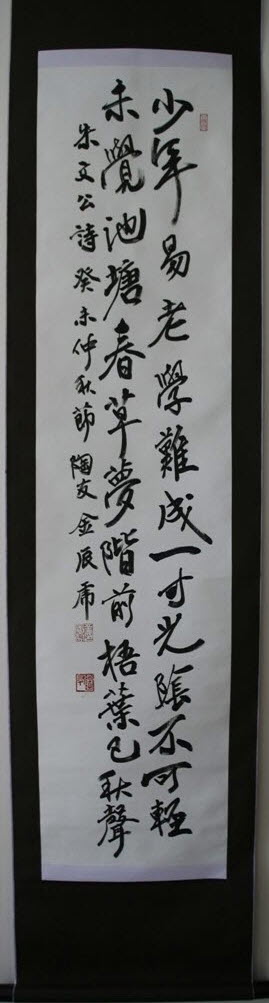 少年易老學難成一寸光陰不可輕
未覺池塘春草夢階前梧葉已秋聲
朱文公詩 癸未仲秋節 陶友 金辰席